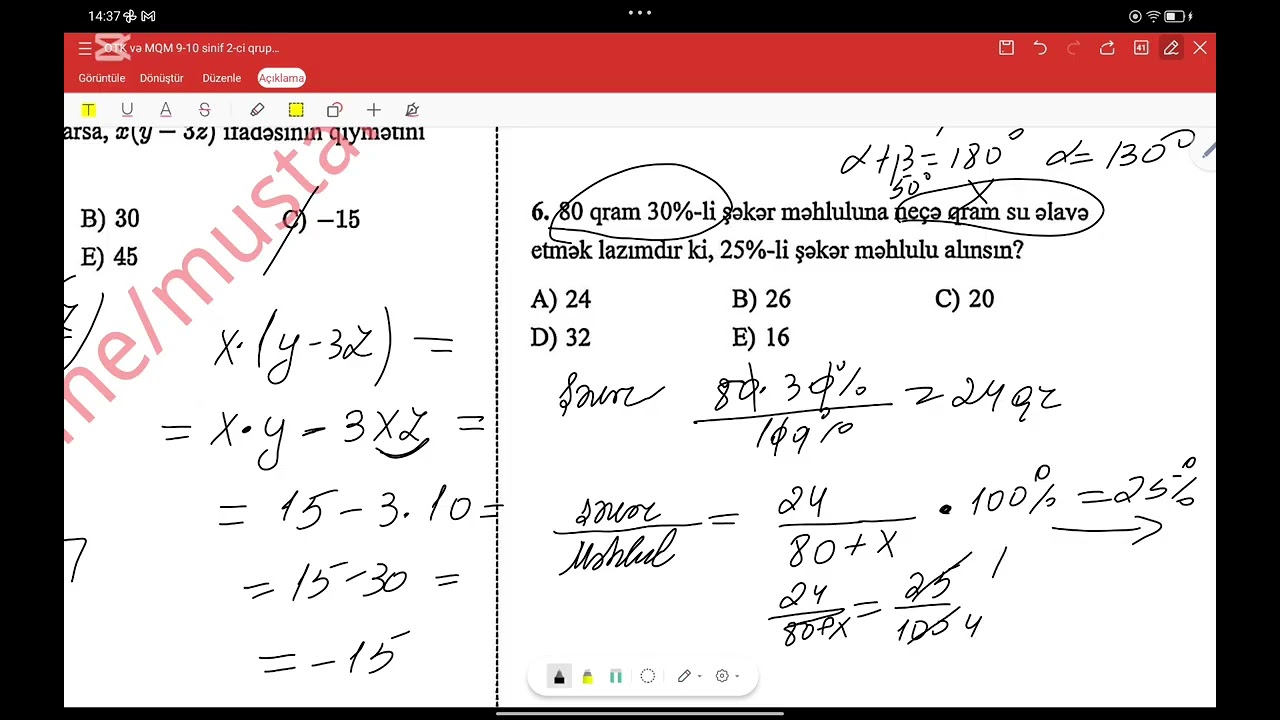 14:37
OTK və MQM 9-10 sinif 2-ci qrup...
41
Görüntüle Dönüştür Düzenle Açıklama
T U A S
arsa, x(y − 3z) ifadəsinin qiymətini
B) 30 C) −15
E) 45
me/musta
x·(y-3z) =
= x·y - 3xz =
= 15 - 3·10 =
= 15-30 =
= -15
α+β=180° α=130°
50°
x
6. 80 qram 30%-li şəkər məhluluna neçə qram su əlavə
etmək lazımdır ki, 25%-li şəkər məhlulu alınsın?
A) 24 B) 26 C) 20
D) 32 E) 16
80·30% / 100% = 24 qr
Məhlul = 24 / 80+x · 100% = 25%
24 / 80+x = 25 / 100 1 4